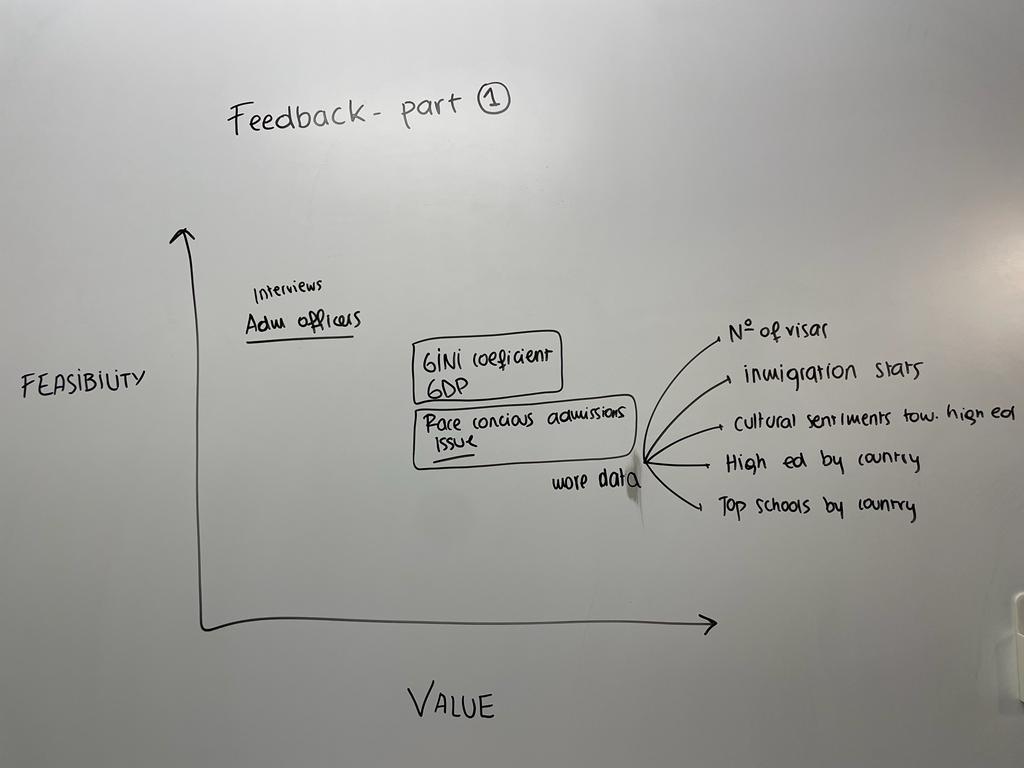 Feedback - part ①
Interviews
Adm officers
FEASIBILITY
GINI coeficient
GDP
Race concious admissions
Issue
more data
Nº of visas
inmigration stats
cultural sentiments tow. high ed
High ed by country
Top schools by country
VALUE